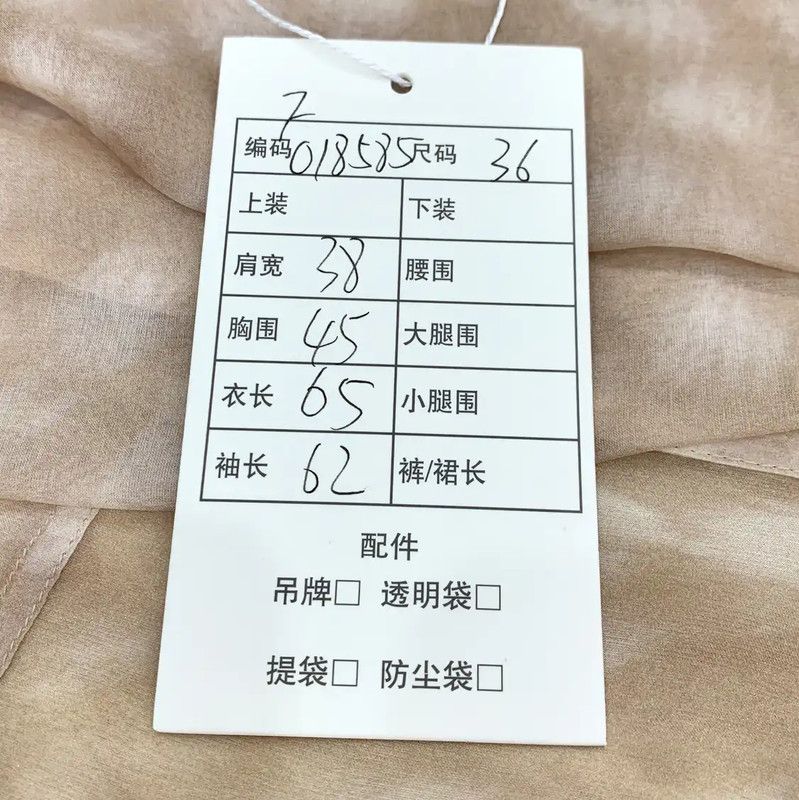 编码 F018585 尺码 36
上装 下装
肩宽 38 腰围
胸围 45 大腿围
衣长 65 小腿围
袖长 62 裤/裙长
配件
吊牌□ 透明袋□
提袋□ 防尘袋□